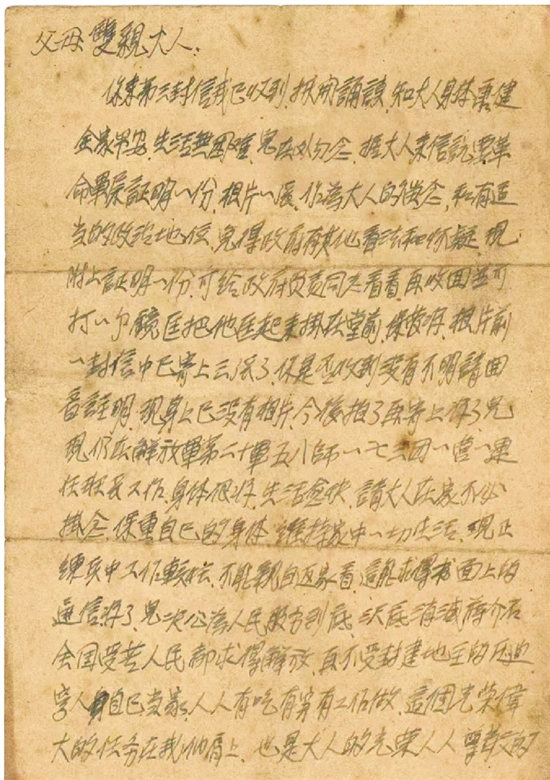 父母雙親大人.
你來第三封信我已收到.披閱誦讀.知大人身体康健
全家平安.生活無困难.兒在外勿念.據大人來信說要革
命軍属証明一份.相片一張.作為大人的懷念.和有适
当的政治地位.免得政府有其他看法和怀疑.現
附上証明一份.可給政府负責同志看看.再收回並可
打一个鏡匡把他匡起来掛在堂前.保存好.相片前
一封信中已寄上三張了.你是否收到没有不明請回
音註明.現身上已没有相片.今後拍了再寄上好了.兒
現仍在解放軍第二十軍五八師一七三团一营一連
任班長工作.身体很好.生活愉快.請大人在家不必
掛念.保重自已的身体.維持家中一切生活.現正
練兵中工作較忙.不能親自返家看.這能求得书面上的
通信好了.兒决心為人民服务到底.决底消滅蔣介石
全国受苦人民都求得解放.再不受封建地主的压迫
窮人自已当家.人人有吃有穿有工作做.這個光荣偉
大的任务在我们肩上.也是大人的光荣人人尊敬的